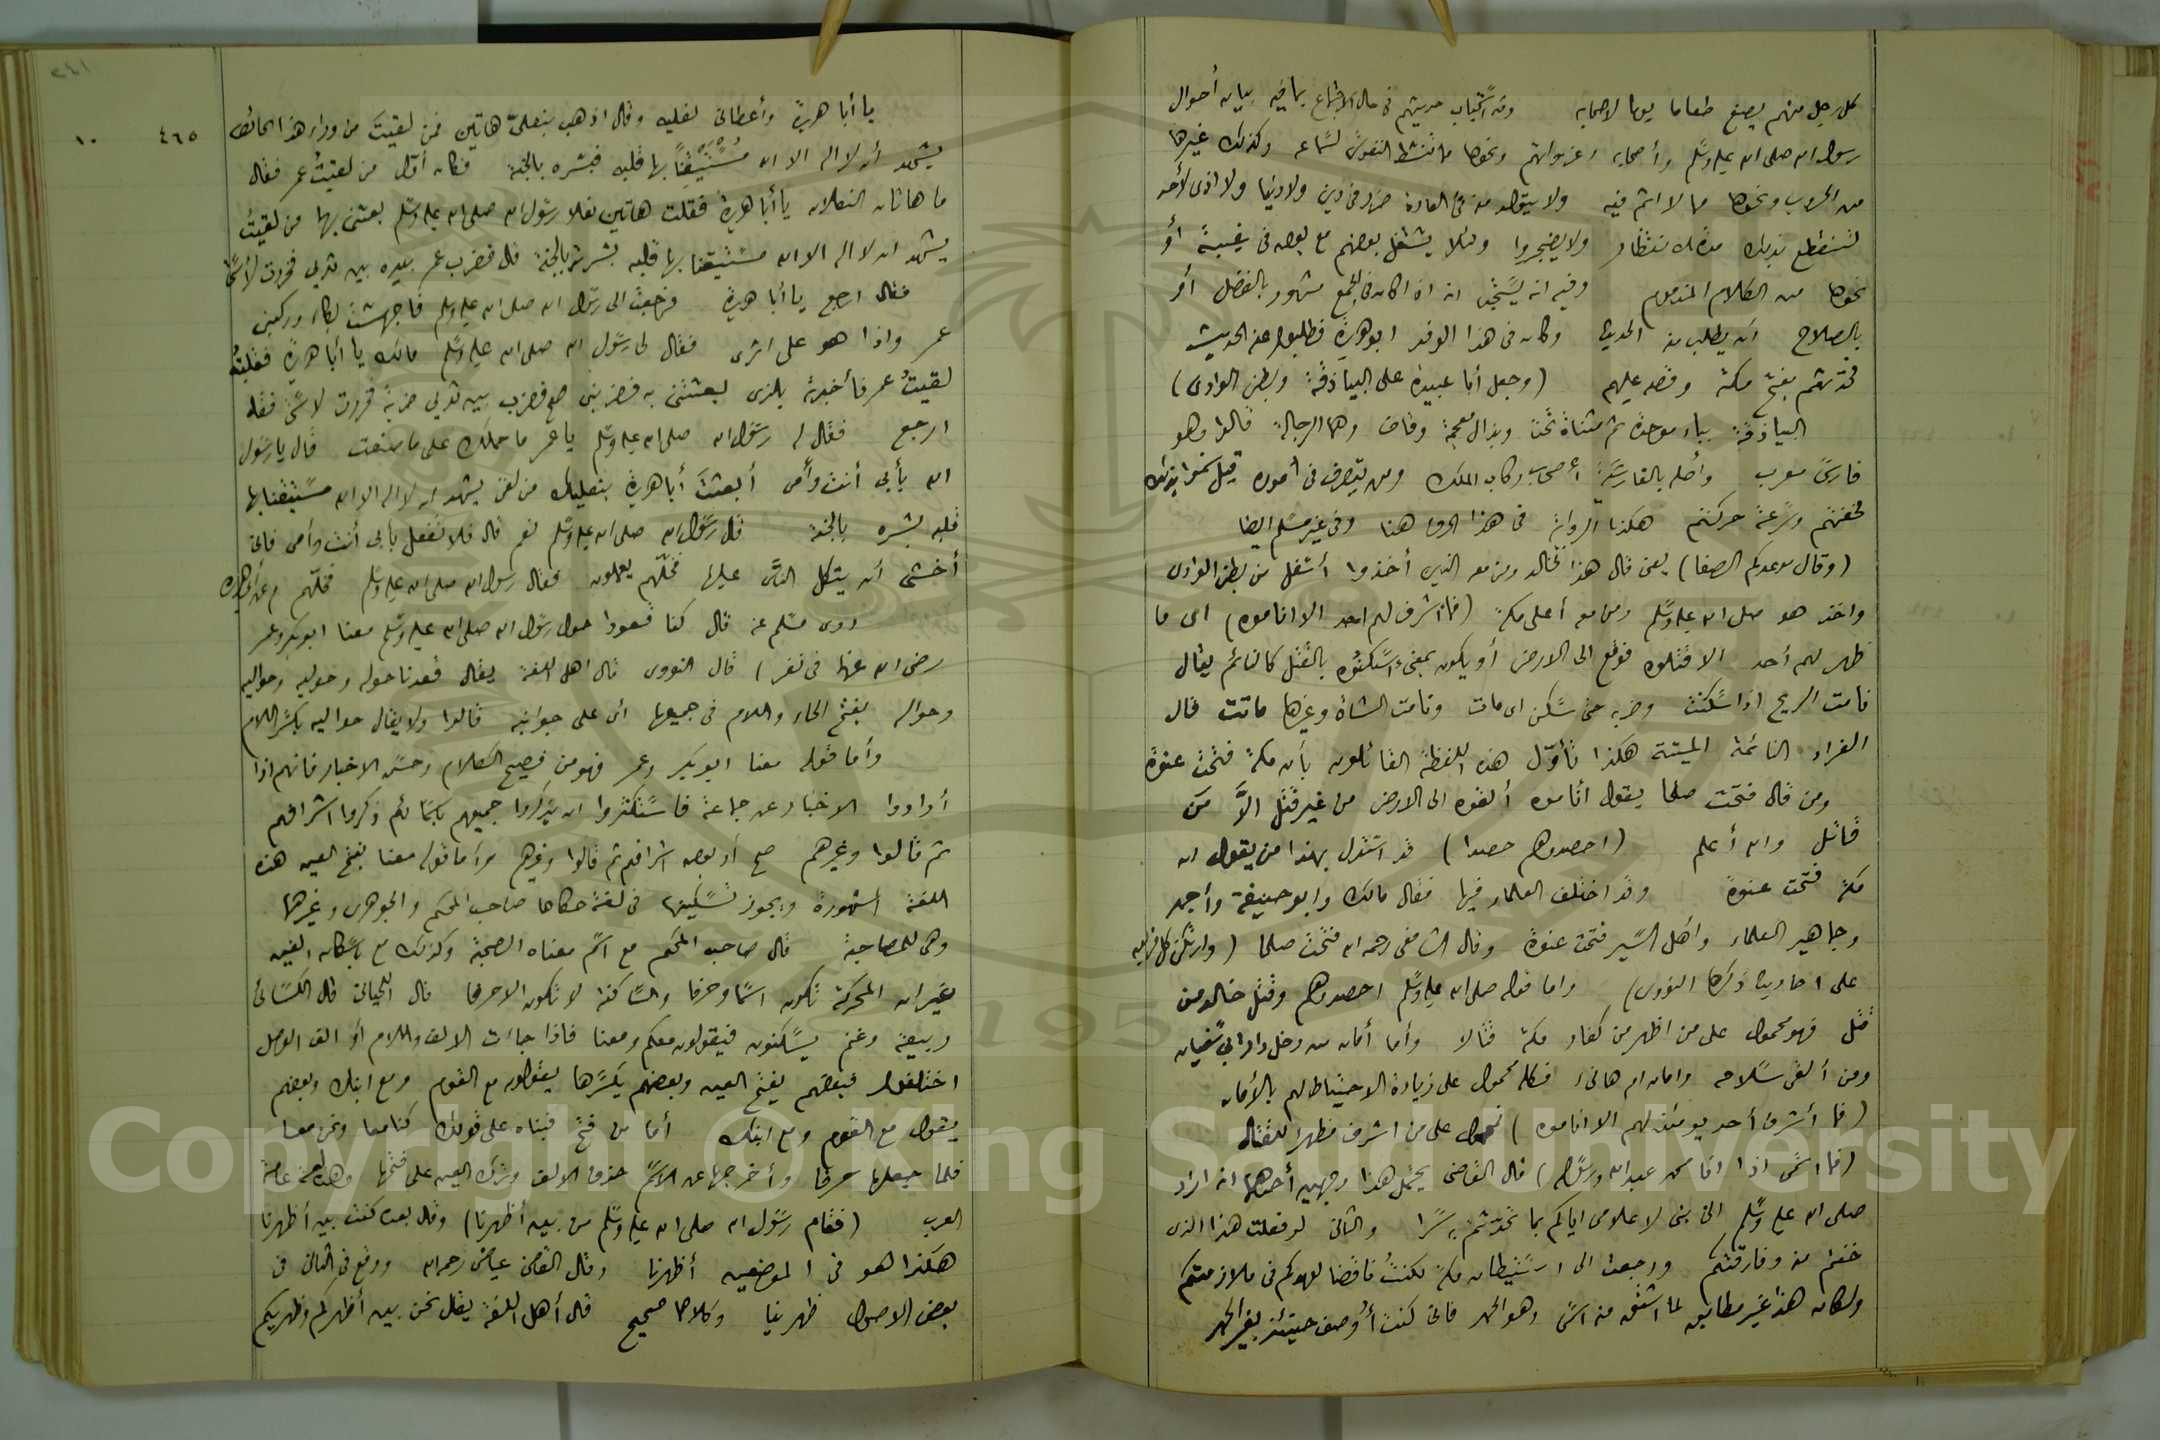 كل رجل منهم يصنع طعاما يوما لاصحابه وفيه استحباب حديثهم في حال الاجتماع بما فيه بيان أحوال
رسول الله صلى الله عليه وسلم وأصحابه وغزواتهم ونحوها مما تنشط النفوس لسماعه وكذلك غيرها
من الحروب ونحوها مما لا اثم فيه ولا يتولد منه في العادة ضرر في دين ولا دنيا ولا اذى لأحد
لتنقطع بذلك مدة الانتظار ولا يضجروا ولئلا يشتغل بعضهم مع بعض في غيبة أو
نحوها من الكلام المذموم وفيه انه يستحب انه اذا كان في الجمع مشهور بالفضل أو
بالصلاح أن يطلب منه الحديث وكان في هذا الوفد ابو هريرة فطلبوا منه الحديث
فحدثهم بفتح مكة وقصه عليهم (وجعل أبا عبيدة على البياذقة وبطن الوادى)
البياذقة بباء موحدة ثم مثناة تحت وبذال معجمة وقاف وهم الرجالة قالوا وهو
فارسي معرب وأصله بالفارسية أصحاب ركاب الملك ومن يتصرف في أموره قيل سموا بذلك
لخفتهم وسرعة حركتهم هكذا الرواية في هذا الحرف هنا وفي غير مسلم ايضا
(وقال موعدكم الصفا) يعني قال هذا لخالد ومن معه الذين أخذوا أسفل من بطن الوادى
واخذ هو صلى الله عليه وسلم ومن معه أعلى مكة (فما اشرف لهم احد الا اناموه) اى ما
ظهر لهم أحد الا قتلوه فوقع الى الارض أو يكون بمعنى اسكتوه بالقتل كالنائم يقال
نامت الريح اذا سكنت وضربه حتى سكن اى مات ونامت الشاة وغيرها ماتت قال
الفراء النائمة الميتة هكذا تأول هذه اللفظة القائلون بأن مكة فتحت عنوة
ومن قال فتحت صلحا يقول أناموه ألقوه الى الارض من غير قتل الا من
قاتل والله أعلم (احصدوهم حصدا) قد استدل بهذا من يقول ان
مكة فتحت عنوة وقد اختلف العلماء فيها فقال مالك وابو حنيفة وأحمد
وجماهير العلماء واهل السير فتحت عنوة وقال الشافعى رحمه الله فتحت صلحا
على احاديث ذكرها النووى) واما قوله صلى الله عليه وسلم احصدوهم وقتل خالد من
قتل فهو محمول على من اظهر من كفار مكة قتالا وأما أمان من دخل دار ابي سفيان
ومن ألقى سلاحه وامان ام هانىء فكله محمول على زيادة الاحتياط لهم بالأمان
(فما أشرف أحد يومئذ لهم الا اناموه) محمول على من اشرف مظهرا للقتال
(فما اسمى اذا انا محمد عبد الله ورسوله) قال القاضى يحتمل هذا وجهين أحدهما انه اراد
صلى الله عليه وسلم انى نبى لاعلامى اياكم بما تحدثتم به سرا والثانى لو فعلت هذا الذى
خفتم منه وفارقتكم ورجعت الى استيطان مكة لكنت ناقضا لعهدكم في ملازمتكم
ولكان هذا غير مطابق لما اشتق منه اسمى وهو الحمد فانى كنت أوصف حينئذ بغير الحمد
٤٦٥
١٠
يا أبا هريرة وأعطانى نعليه وقال اذهب بنعلى هاتين فمن لقيت من وراء هذا الحائط
يشهد أن لا اله الا الله مستيقنا بها قلبه فبشره بالجنة فكان أول من لقيت عمر فقال
ما هاتان النعلان يا أبا هريرة فقلت هاتين نعلا رسول الله صلى الله عليه وسلم بعثنى بهما من لقيت
يشهد ان لا اله الا الله مستيقنا بها قلبه بشرته بالجنة قال فضرب عمر بيده بين ثديى فخررت لأستى
فقال ارجع يا أبا هريرة فرجعت الى رسول الله صلى الله عليه وسلم فاجهشت بكاء وركبنى
عمر واذا هو على اثرى فقال لى رسول الله صلى الله عليه وسلم مالك يا أبا هريرة فقلت
لقيت عمر فأخبرته بالذى بعثتنى به فضرب بين ثديى ضربة خررت لاستى فقال
ارجع فقال له رسول الله صلى الله عليه وسلم يا عمر ما حملك على ما صنعت قال يا رسول
الله بأبى أنت وأمى أبعثت أبا هريرة بنعليك من لقى يشهد ان لا اله الا الله مستيقنا بها
قلبه بشره بالجنة قال رسول الله صلى الله عليه وسلم نعم قال فلا تفعل بأبى أنت وأمى فانى
أخشى أن يتكل الناس عليها فخلهم يعملون فقال رسول الله صلى الله عليه وسلم فخلهم م عن أبى هريرة
روى مسلم عنه قال كنا قعودا حول رسول الله صلى الله عليه وسلم معنا ابو بكر وعمر
رضى الله عنهما في نفر) قال النووى قال اهل اللغة يقال قعدنا حوله وحوليه وحواليه
وحواله بفتح الحاء واللام في جميعها اى على جوانبه قالوا ولا يقال حواليه بكسر اللام
وأما قوله معنا ابو بكر وعمر فهو من فصيح الكلام وحسن الاخبار فانهم اذا
أرادوا الاخبار عن جماعة فاستكثروا ان يذكروا جميعهم باسمائهم ذكروا اشرافهم
ثم قالوا وغيرهم صح أو بعض اشرافهم ثم قالوا وغيرهم وأما قوله معنا بفتح العين هذه
اللغة المشهورة ويجوز تسكينها في لغة حكاها صاحب المحكم والجوهرى وغيرهما
وهى للمصاحبة قال صاحب المحكم مع اسم معناه الصحبة وكذلك مع باسكان العين
غير ان المحركة تكون اسما وحرفا والساكنة لا تكون الا حرفا قال اللحيانى قال الكسائى
ربيعة وغنم يسكنون فيقولون معكم ومعنا فاذا جاءت الالف واللام أو الف الوصل
اختلفوا فبعضهم يفتح العين وبعضهم يكسرها يقولون مع القوم ومع ابنك وبعضهم
يقول مع القوم ومع ابنك أما من فتح فبناه على قولك كنا معا ونحن معا
فلما جعلها حرفا وأخرجها عن الاسم حذف الالف وترك العين على فتحها وهذه لغة عامة
العرب (فقام رسول الله صلى الله عليه وسلم من بين أظهرنا) وقال بعده كنت بين أظهرنا
هكذا هو في الموضعين أظهرنا وقال القاضى عياض رحمه الله ووقع في الثانى في
بعض الاصول ظهرينا وكلاهما صحيح قال أهل اللغة يقال نحن بين أظهركم وظهريكم
Copyright © King Saud University
1957